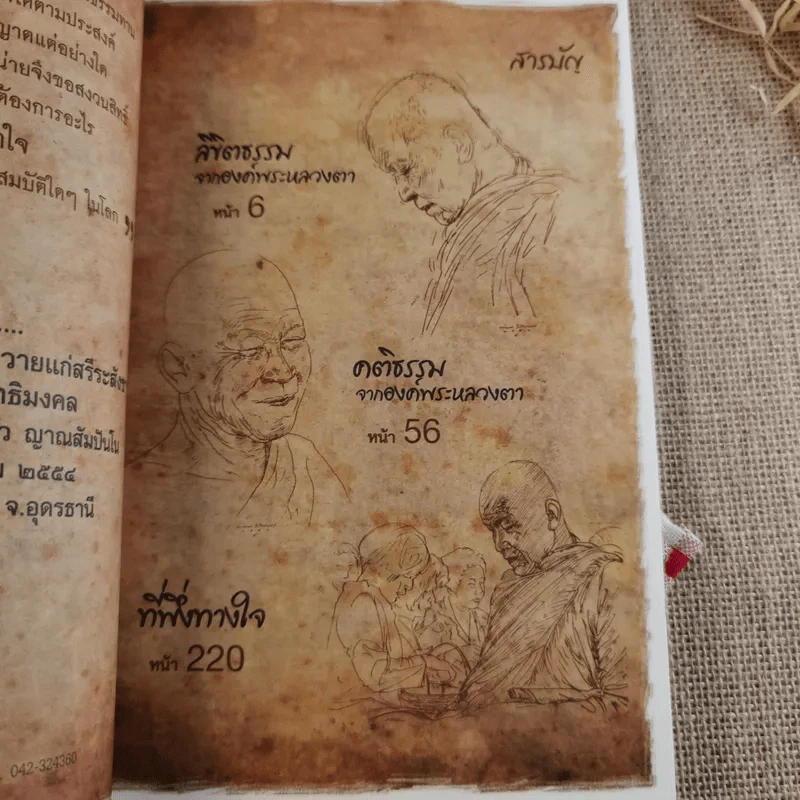 ธรรมทาน
ได้ตามประสงค์
ญาตแต่อย่างใด
น่ายจึงขอสงวนสิทธิ์
ต้องการอะไร
ใจ
สมบัติใดๆ ในโลก
....
วายแก่สรีระสังข
าธิมงคล
ว ญาณสัมปันโน
ม ๒๕๕๔
จ.อุดรธานี
042-324360
สารบัญ
ลิขิตธรรม
จากองค์พระหลวงตา
หน้า 6
คติธรรม
จากองค์พระหลวงตา
หน้า 56
ที่พึ่งทางใจ
หน้า 220